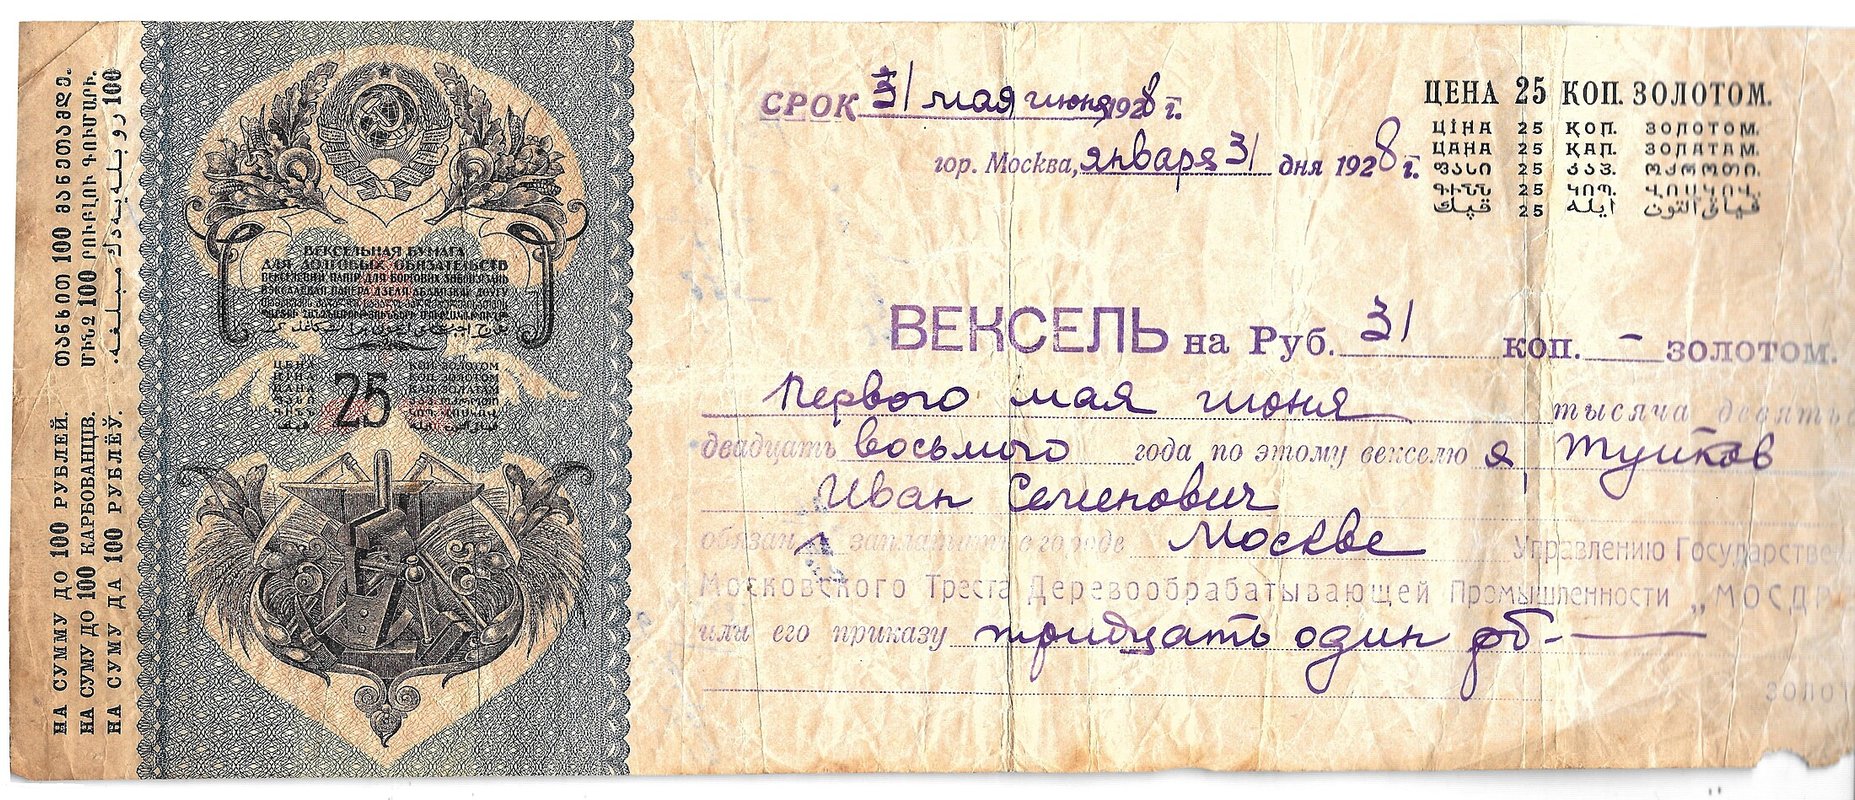 НА СУММУ ДО 100 РУБЛЕЙ. თანხით 100 მანეთამდე.
НА СУМУ ДО 100 КАРБОВАНЦІВ. ՄԻՆՉ 100 ՐՈՒԲԼՈՒ ԳՈՒՄԱՐԻ.
НА СУМУ ДА 100 РУБЛЁЎ.
ВЕКСЕЛЬНАЯ БУМАГА
ДЛЯ ДОЛГОВЫХ ОБЯЗАТЕЛЬСТВ
ВЕКСЕЛЕВИЙ ПАПІР ДЛЯ БОРГОВИХ ЗОБОВ'ЯЗАНЬ
ЦЕНА КОП. ЗОЛОТОМ
ЦІНА КОП. ЗОЛОТОМ
ЦАНА КАП. ЗОЛАТАМ
25
СРОК 31 мая июня 1928 г.
гор. Москва, января 31 дня 1928 г.
ЦЕНА 25 КОП. ЗОЛОТОМ.
ЦІНА 25 КОП. ЗОЛОТОМ.
ЦАНА 25 КАП. ЗОЛАТАМ.
ՓԱՍԻ 25
ԳԻՆՆ 25 ԿՈՊ. ՎՈՍԿՈՎ.
25
ВЕКСЕЛЬ на Руб. 31 коп. – золотом.
Первого мая июня тысяча девять
двадцать восьмого года по этому векселю я,
Иван Семенович
обязан заплатить в городе Москве Управлению Государстве
Московского Треста Деревообрабатывающей Промышленности „МОСДР
или его приказу тридцать один рб-
золот